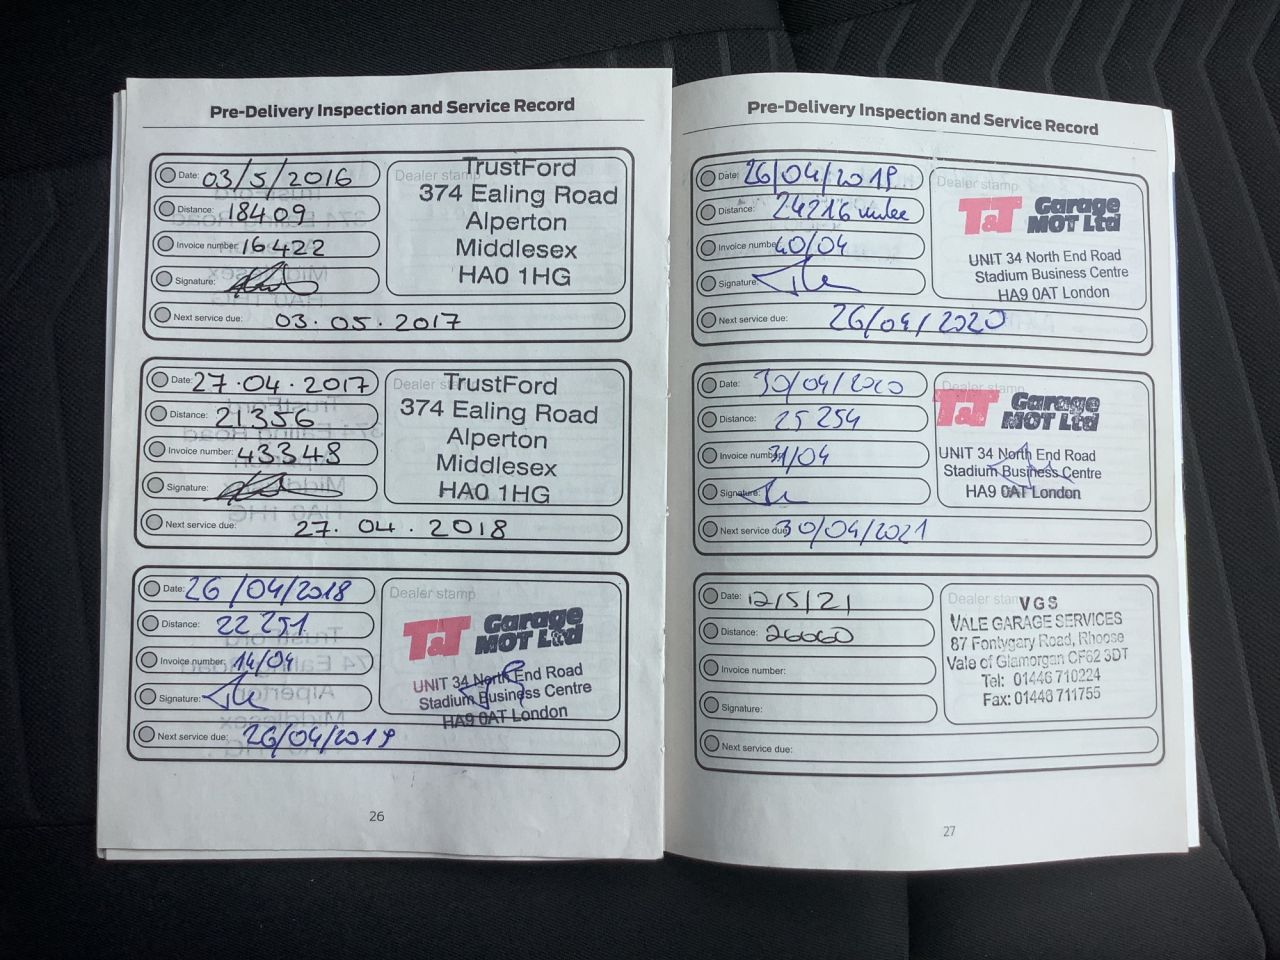 Pre-Delivery Inspection and Service Record
Date: 03/5/2016
Distance: 18409
Invoice number: 16422
Signature:
Next service due: 03.05.2017
Dealer stamp
TrustFord
374 Ealing Road
Alperton
Middlesex
HA0 1HG
Date: 27.04.2017
Distance: 21356
Invoice number: 43348
Signature:
Next service due: 27.04.2018
Dealer stamp
TrustFord
374 Ealing Road
Alperton
Middlesex
HA0 1HG
Date: 26/04/2018
Distance: 22251
Invoice number: 14/04
Signature:
Next service due: 26/04/2019
Dealer stamp
T&T Garage
MOT Ltd
UNIT 34 North End Road
Stadium Business Centre
HA9 0AT London
26
Pre-Delivery Inspection and Service Record
Date: 26/04/2019
Distance: 24216 miles
Invoice number: 40/04
Signature:
Next service due: 26/04/2020
Dealer stamp
T&T Garage
MOT Ltd
UNIT 34 North End Road
Stadium Business Centre
HA9 0AT London
Date: 30/04/2020
Distance: 25254
Invoice number: 31/04
Signature:
Next service due: 30/04/2021
Dealer stamp
T&T Garage
MOT Ltd
UNIT 34 North End Road
Stadium Business Centre
HA9 0AT London
Date: 12/5/21
Distance: 26060
Invoice number:
Signature:
Next service due:
Dealer stamp
VGS
VALE GARAGE SERVICES
87 Fontygary Road, Rhoose
Vale of Glamorgan CF62 3DT
Tel: 01446 710224
Fax: 01446 711755
27